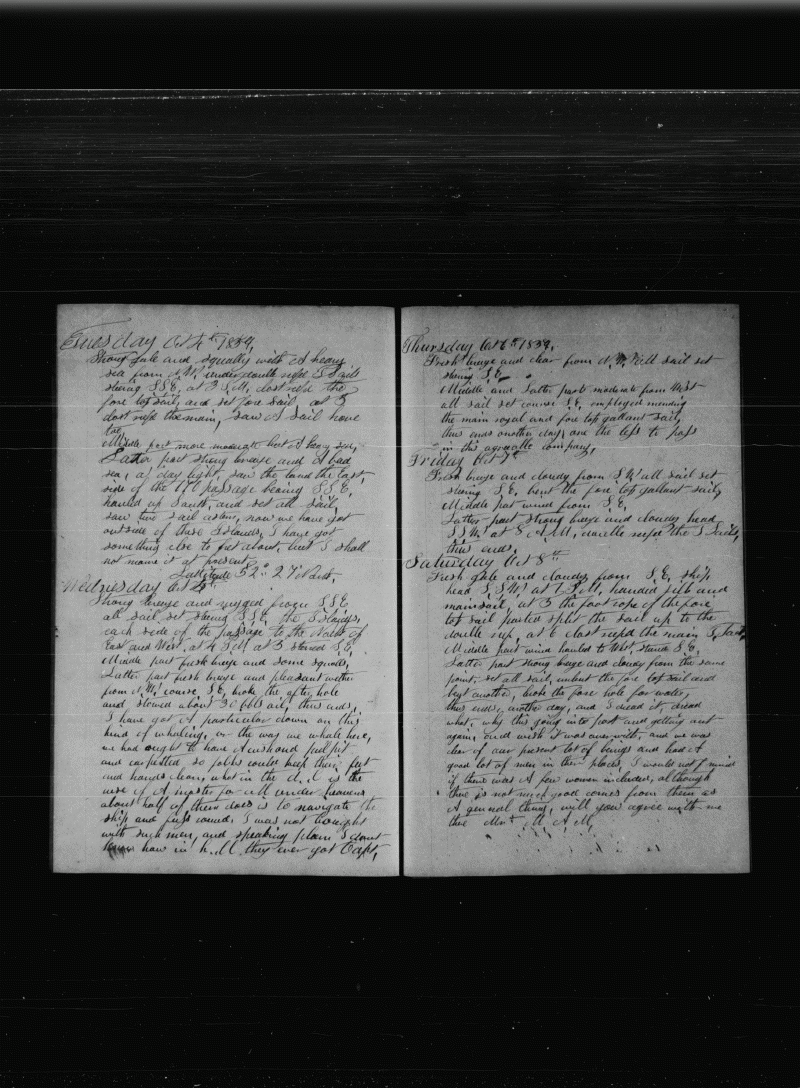 Tuesday Oct 4th 1859,
Strong gale and squally with A heavy
sea from N.W. under double reefd T Sails
stering S.S.E, at 3 P.M, clost reefd the
fore top sail, and set fore sail, at 5
clost reefd the main, saw A Sail hove
too,
Middle part more moderate but A heavy sea,
Latter part strong breeze and A bad
sea, at day light, saw the land the East,
side of the 170 passage bearing S.S.E,
hauled up South, and set all sail,
saw two sail astern, now we have got
outside of these Islands, I have got
something else to fret about, but I shall
not name it at present
Lattitude 52° 27 North,
Wednesday Oct 5th
Strong breeze and rugged from
all sail set stering S.S.E, the Islands
each side of the passage to the North of
East and West, at 4 P.M at 5 steered S.E,
Middle part fresh breeze and some squalls,
Latter part fresh breeze and pleasant wether
from N.W. course, S.E, broke the after hole
and stowed about 30 bbls oil, thus ends,
I have got A particular down on this
kind of whaling, or the way we whale here,
we had ought to have A cushond pulpit
and carpetted, so folks could keep their feet
and hands clean, what in the d..l is the
use of A master for all under heavens
about half of them does is to navigate the
ship and fuss round, I was not brought
with such men, and speaking plain I dont
know how in h..ll they ever got Capt,
Thursday Oct 6th 1859,
Fresh breeze and clear from N.W. all sail set
stering S.E
Middle and Latter parts moderate from West
all sail set course S.E, employed mending
the main royal and fore top gallant sail,
thus ends another day, one the less to pass
in this agreeable company,
Friday Oct 7th
Fresh breeze and cloudy from S.W. all sail set
stering S.E, bent the fore top gallant sail,
Middle part wind from S.E,
Latter part strong breeze and cloudy head
S.S.W. at 8 A.M. double reefd the T Sails,
thus ends,
Saturday Oct 8th
Fresh gale and cloudy from S.E, ship
head S.S.W. at 2 P.M, handed jibb and
mainsail, at 3 the foot rope of the fore
top sail parted split the sail up to the
double reef, at 6 clost reefd the main T, Sail,
Middle part wind hauled to West, steard S.E,
Latter part strong breeze and cloudy from the same
point, set all sail, unbent the fore top sail and
bent another, broke the fore hole for water,
thus ends, another day, and I dread it, dread
what, why this going into port and getting out
again, and wish it was over with, and we was
clear of our present lot of beings and had A
good lot of men in their places, I would not mind
if there was A few women included, although
thare is not much good comes from them as
A genneral thing, will you agree with me
there Mrs M A M,